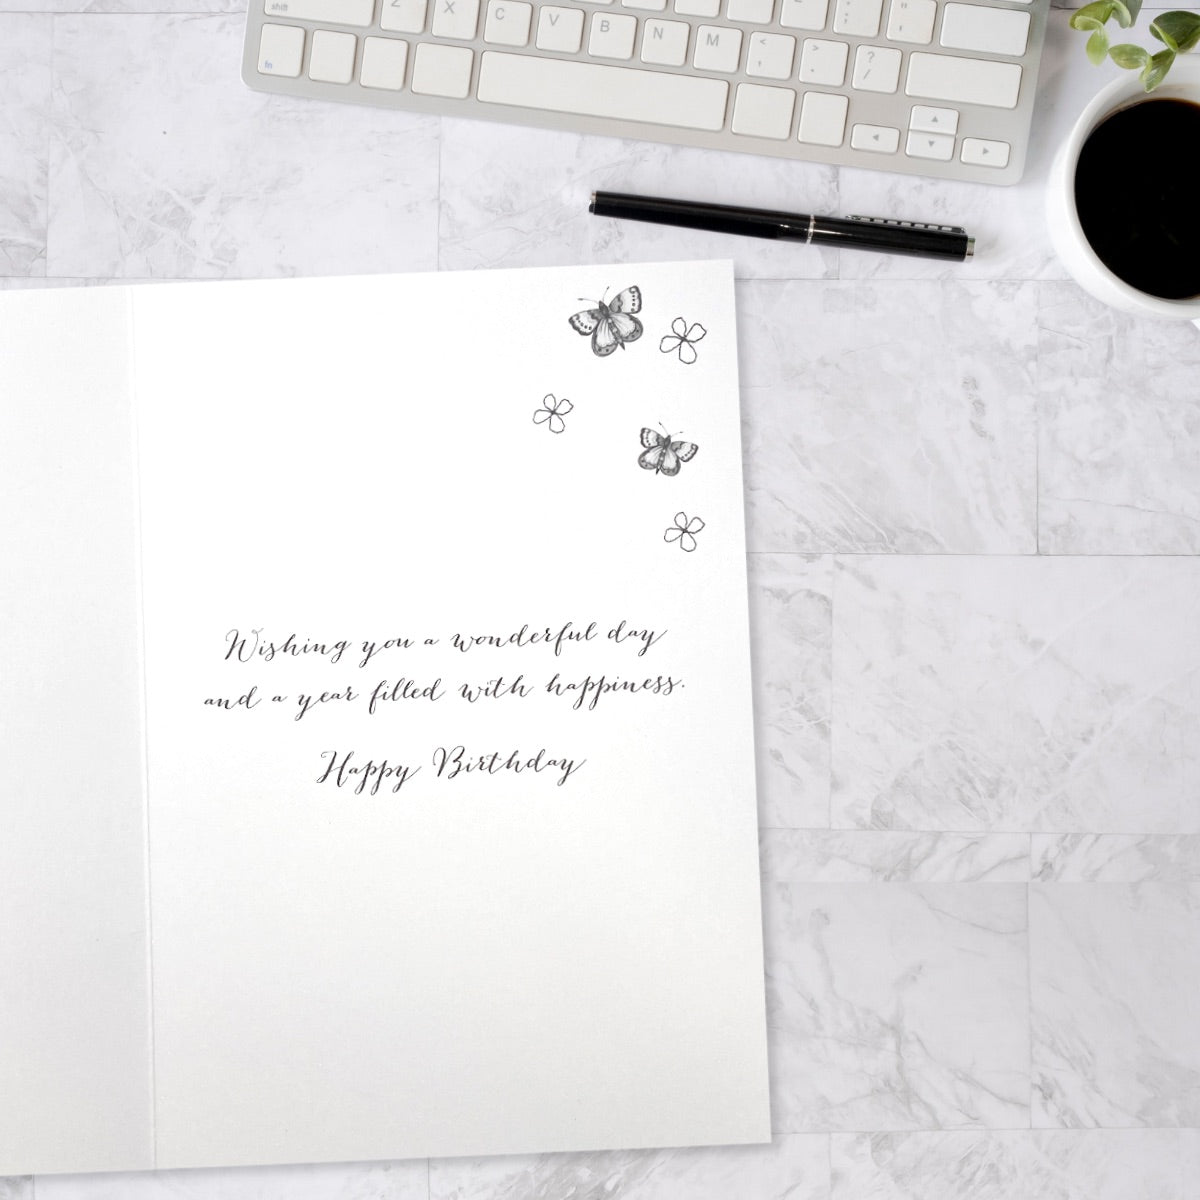 shift Z X C V B N M < , > . : ; " ' ? /
fn
Wishing you a wonderful day
and a year filled with happiness.
Happy Birthday